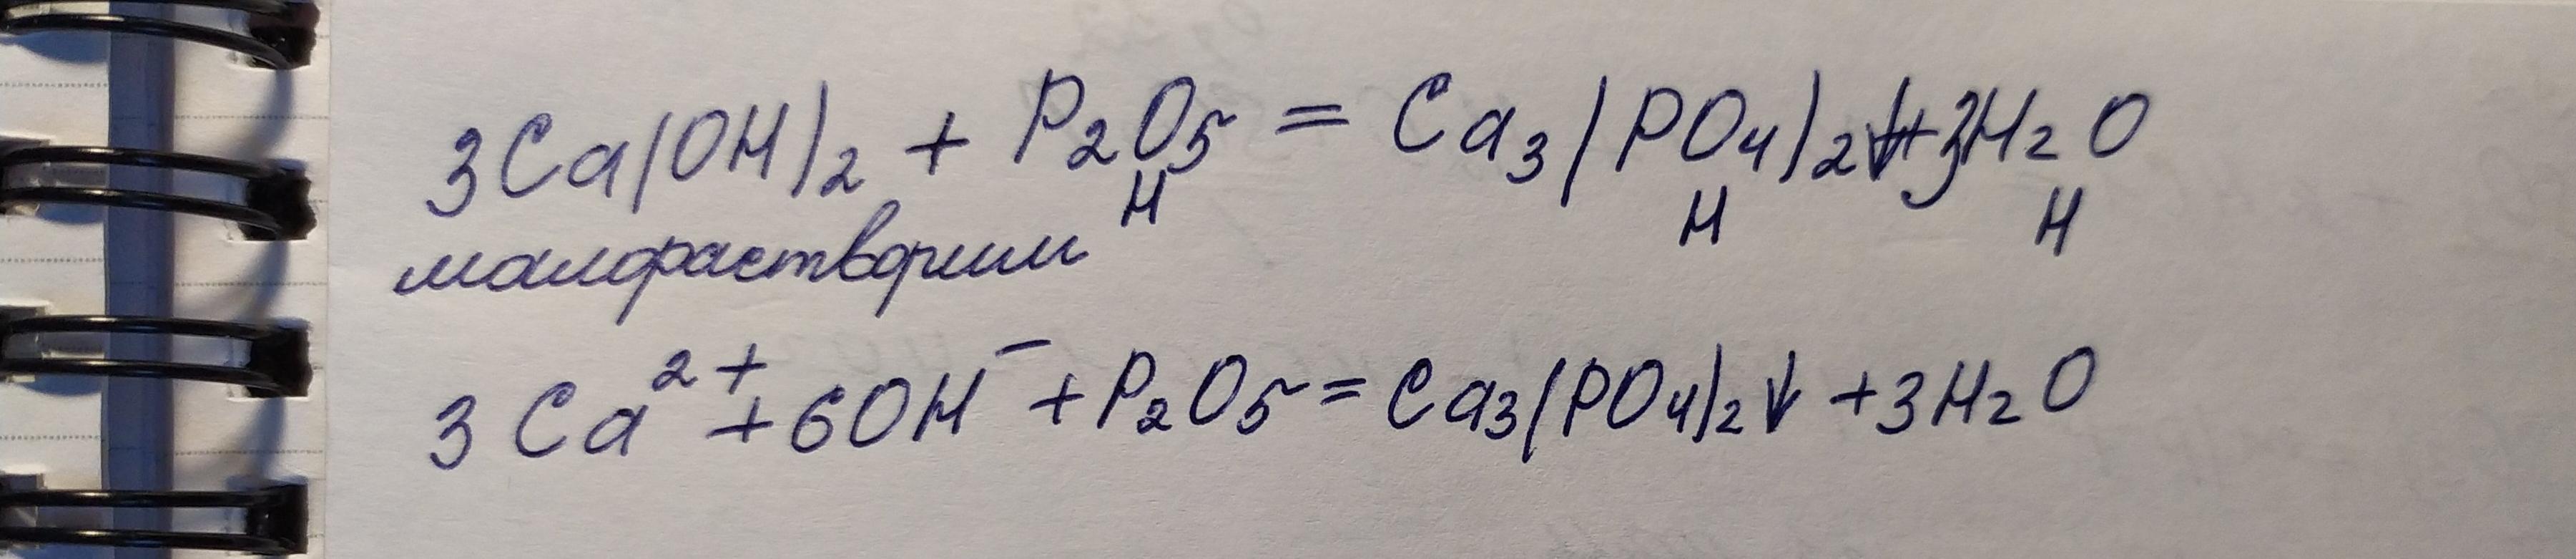 3Ca(OH)₂ + P₂O₅ = Ca₃(PO₄)₂↓+3H₂O
н н н
малорастворим
3Ca²⁺+6OH⁻+P₂O₅=Ca₃(PO₄)₂↓+3H₂O